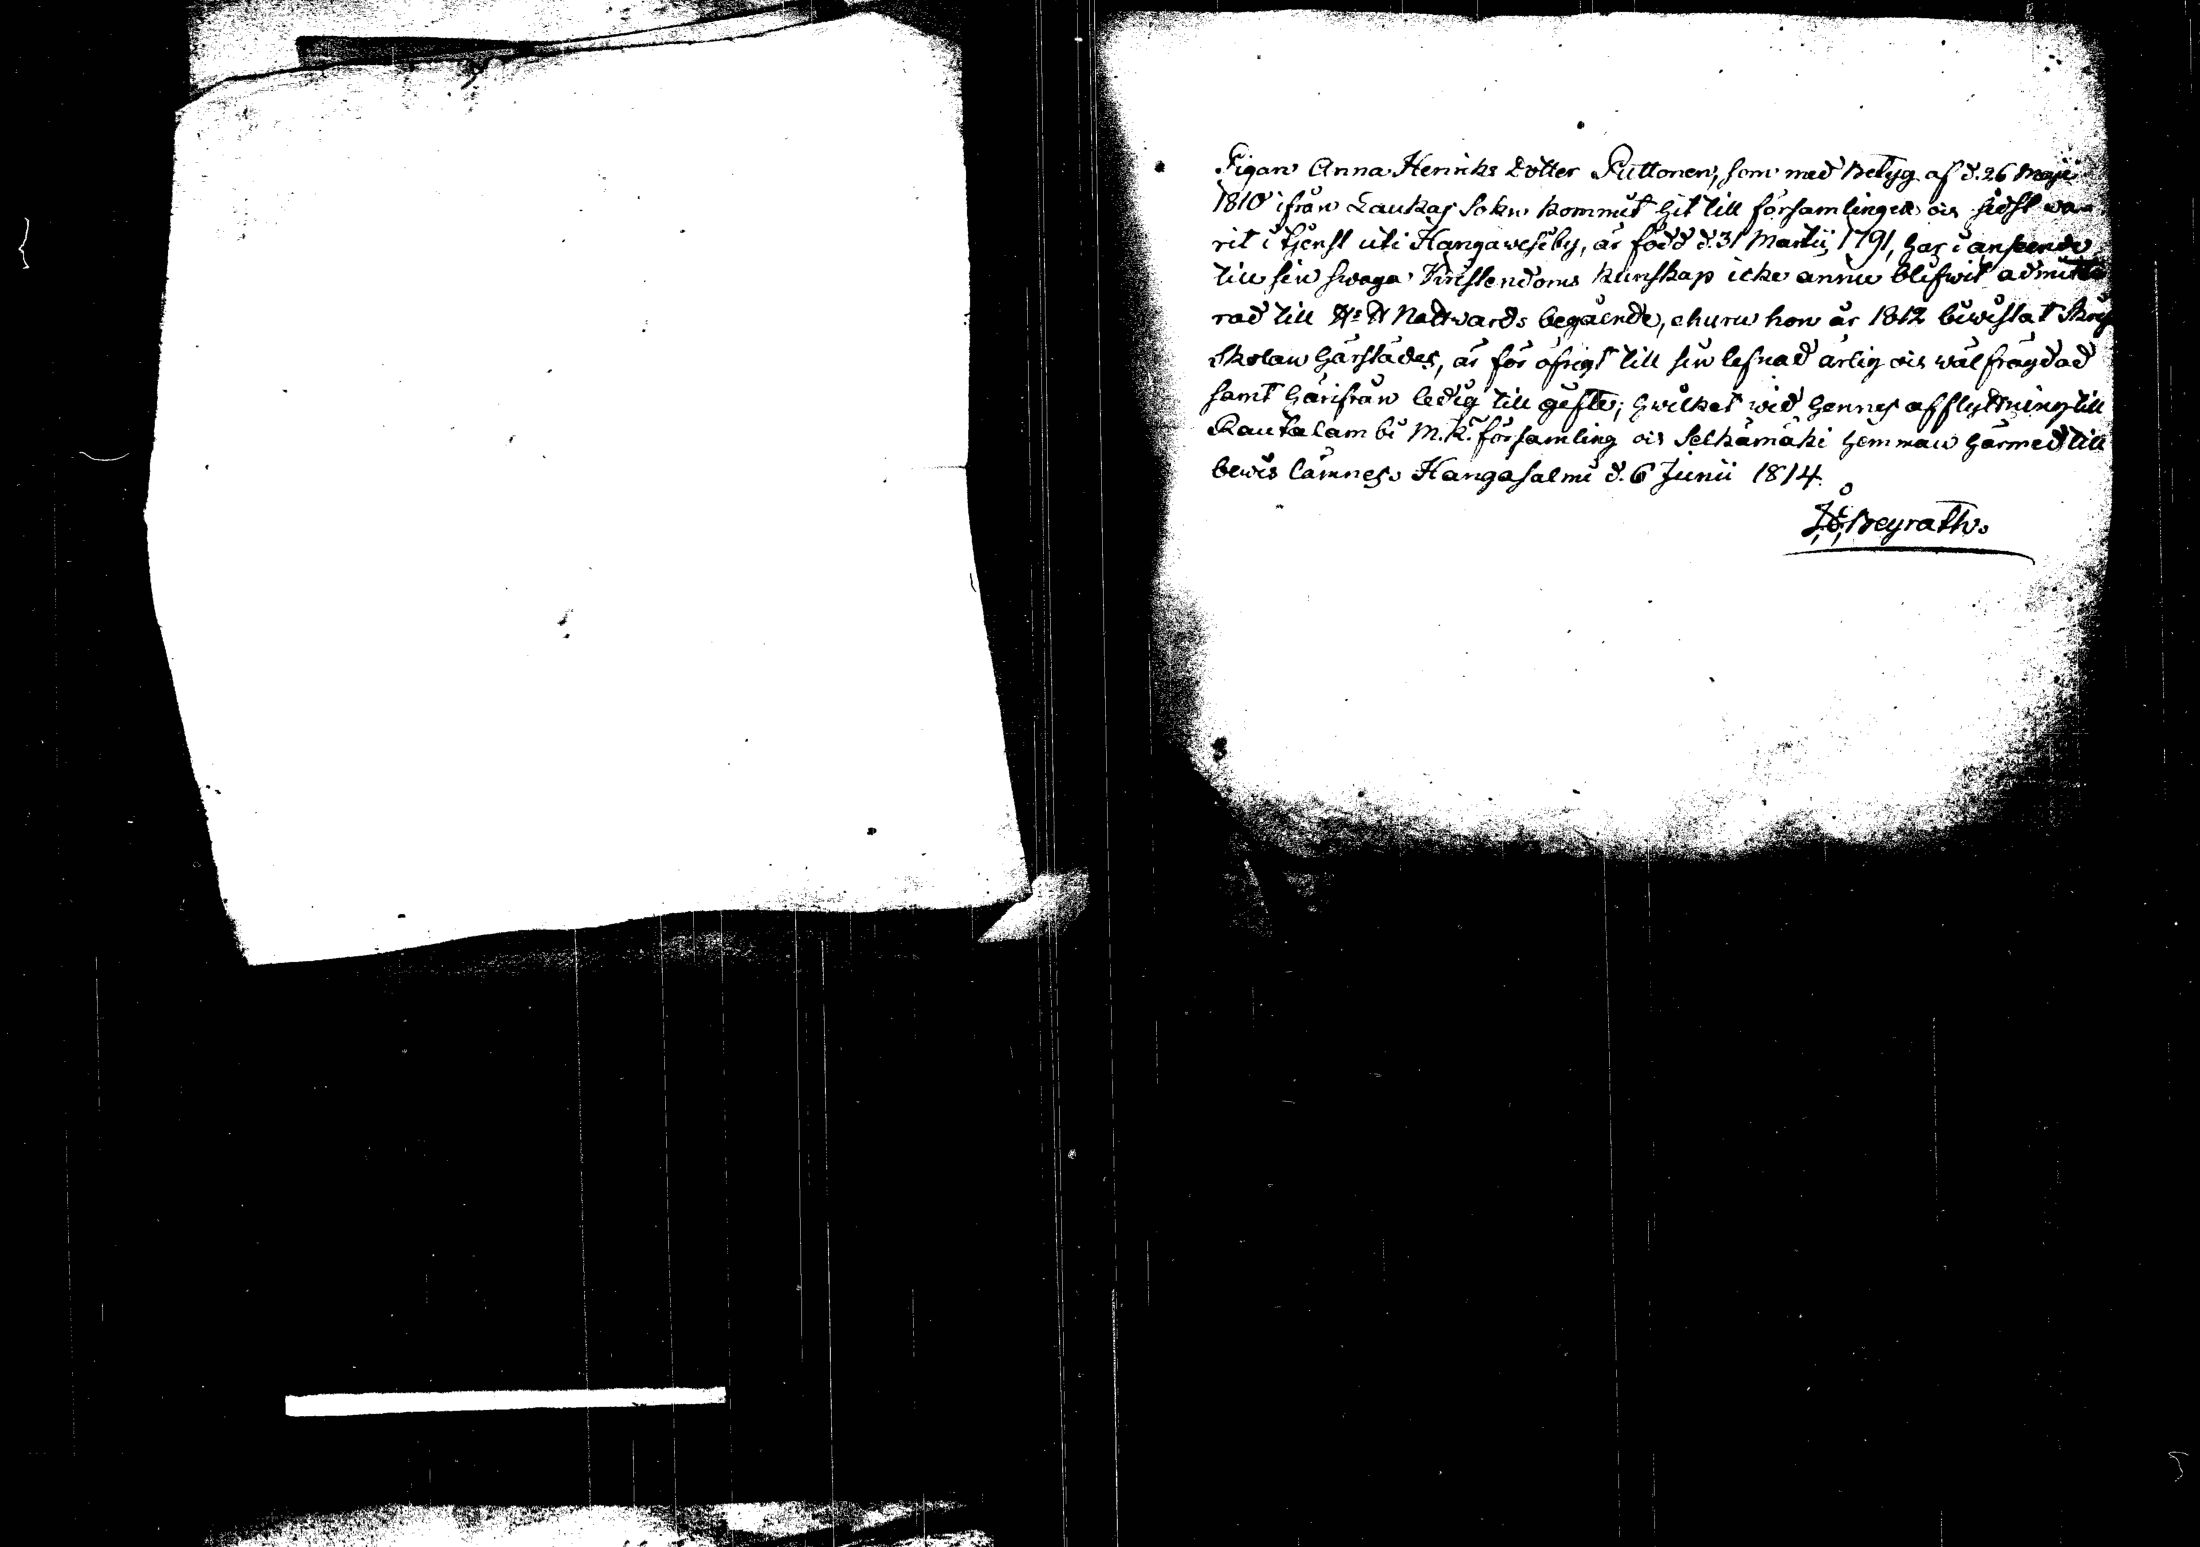 Pigan Anna Henriks Dotter Puttonen, som med Betyg af d. 26 Maji
1810 ifrån Laukas Sokn kommit hit till församlingen och sidst wa-
rit i tjenst uti Hangawesi by, är född d. 31 Martii 1791, har i anseende
till sin swaga Kristendoms kunskap icke ännu blifwit admitte-
rad till Hs H Nattwards begående, ehuru hon år 1812 biwistat Skrift
Skolan härstädes, är för öfrigt till sin lefnad ärlig och wälfrägdad
samt härifrån ledig till gifte; hwilket wid hennes afflyttning till
Rautalambi M. K. församling och Selkämäki hemman härmed till
bewis lämnes. Hangasalmi d. 6 Junii 1814.
Beyrath.